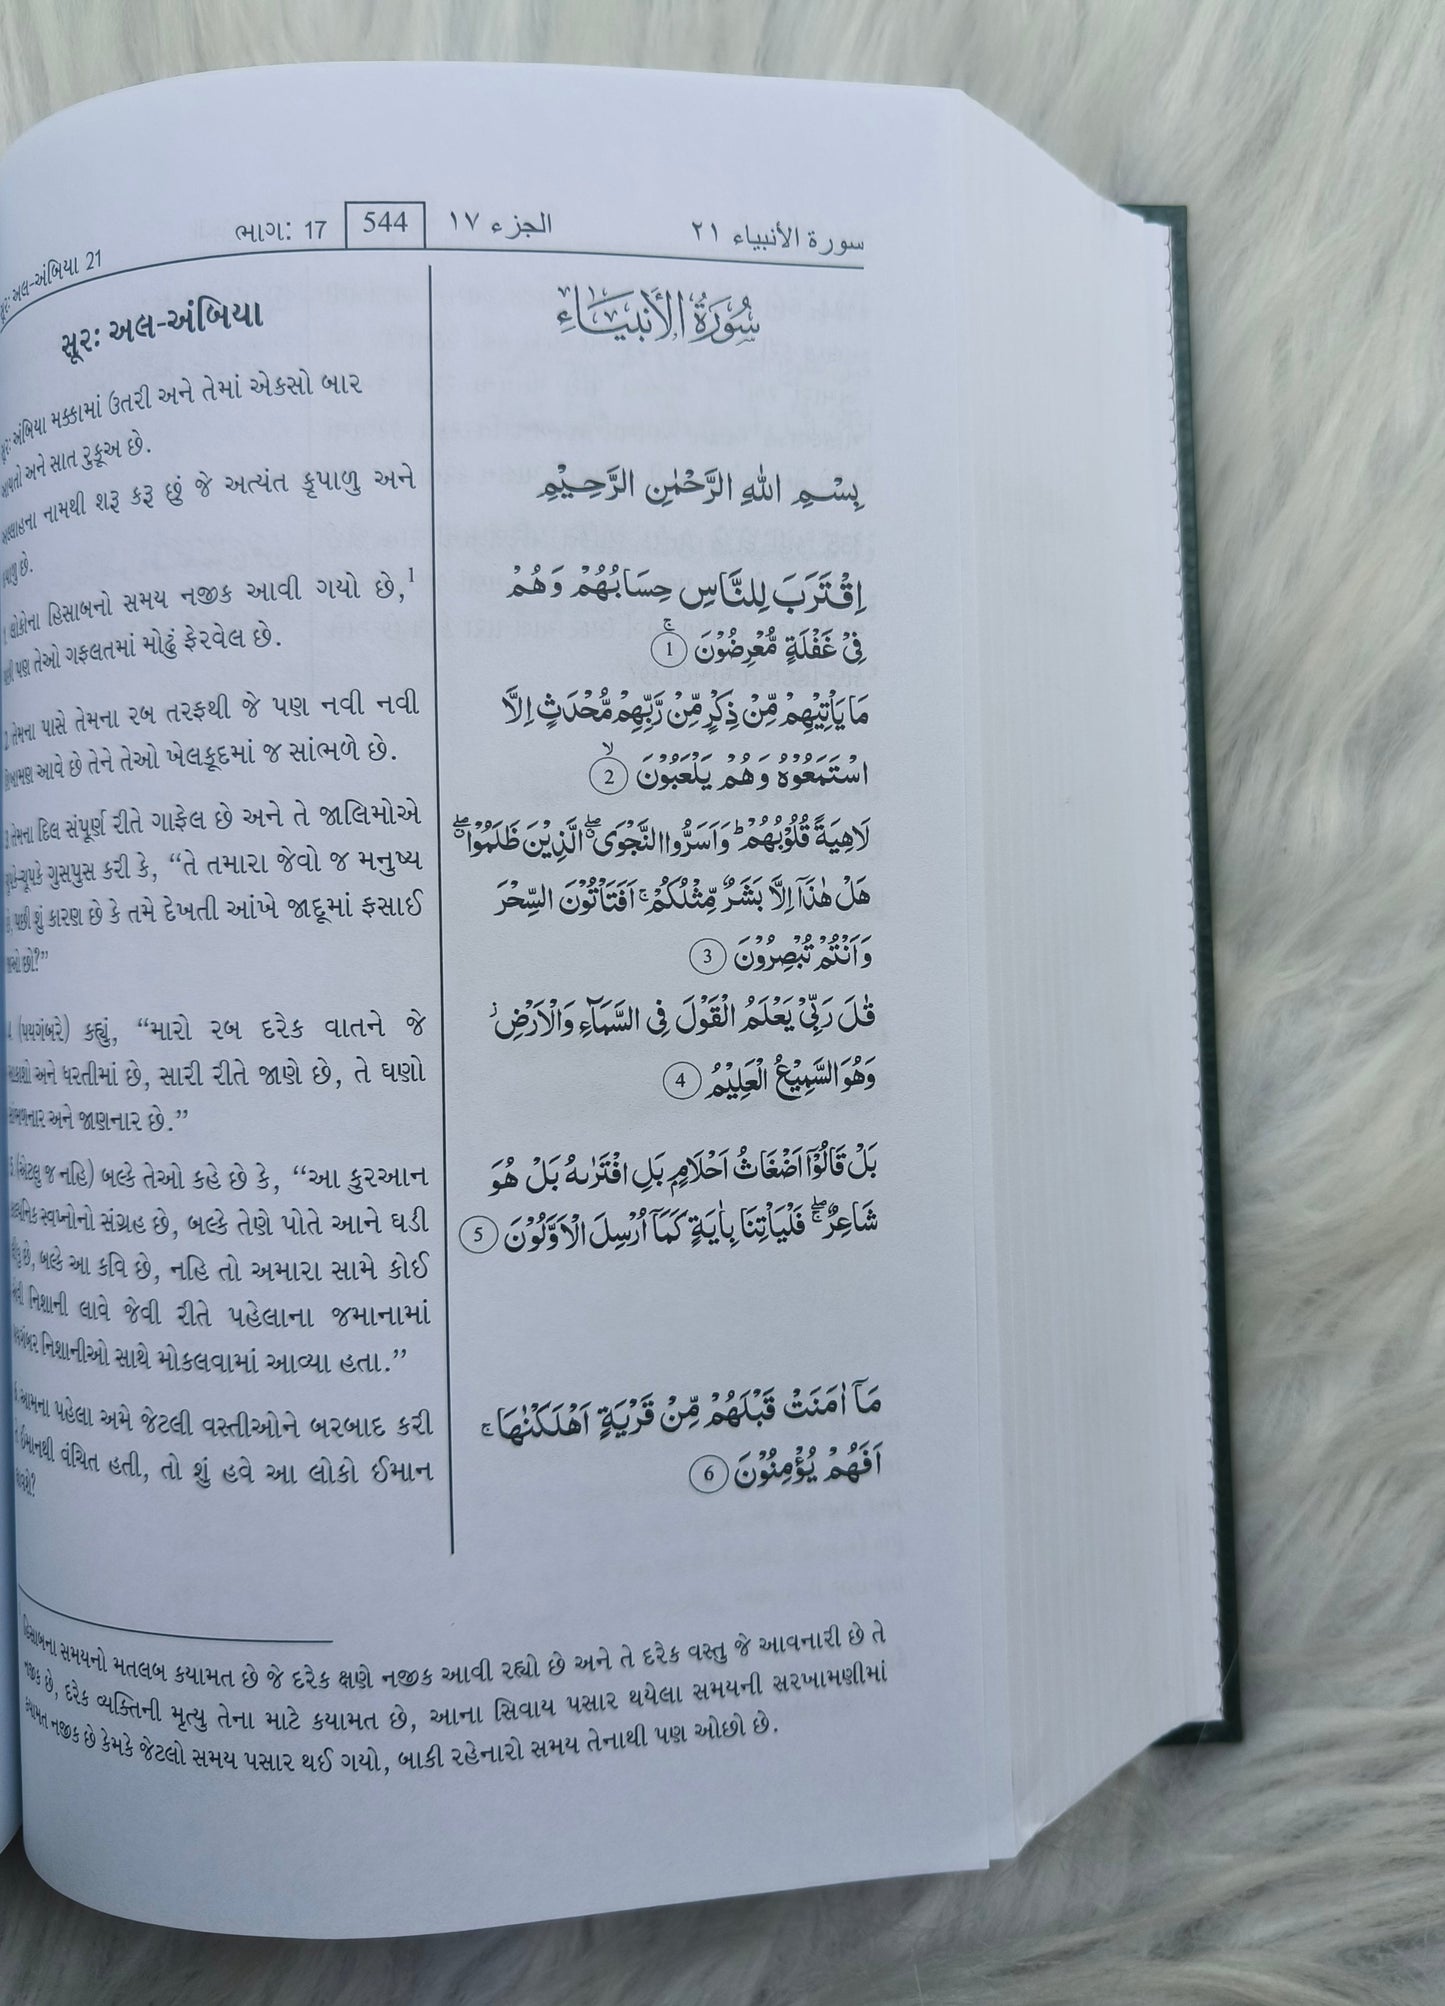 સૂરઃ અલ-અંબિયા 21
ભાગ: 17
544
الجزء ١٧
سورة الأنبياء ٢١
સૂરઃ અલ-અંબિયા
સૂરઃ અંબિયા મક્કામાં ઉતરી અને તેમાં એકસો બાર
આયતો અને સાત રુકૂઅ છે.
અલ્લાહના નામથી શરૂ કરૂ છું જે અત્યંત કૃપાળુ અને
છે.
1 લોકોના હિસાબનો સમય નજીક આવી ગયો છે,1
પણ તેઓ ગફલતમાં મોઢું ફેરવેલ છે.
2 તેમના પાસે તેમના રબ તરફથી જે પણ નવી નવી
શિખામણ આવે છે તેને તેઓ ખેલકૂદમાં જ સાંભળે છે.
3 તેમના દિલ સંપૂર્ણ રીતે ગાફેલ છે અને તે જાલિમોએ
ગુસપુસ કરી કે, “તે તમારા જેવો જ મનુષ્ય
પછી શું કારણ છે કે તમે દેખતી આંખે જાદૂમાં ફસાઈ
છો?”
(પયગંબરે) કહ્યું, “મારો રબ દરેક વાતને જે
અને ધરતીમાં છે, સારી રીતે જાણે છે, તે ઘણો
સાંભળનાર અને જાણનાર છે.”
(એટલુ જ નહિ) બલ્કે તેઓ કહે છે કે, “આ કુરઆન
સ્વપ્નોનો સંગ્રહ છે, બલ્કે તેણે પોતે આને ઘડી
છે, બલ્કે આ કવિ છે, નહિ તો અમારા સામે કોઈ
નિશાની લાવે જેવી રીતે પહેલાના જમાનામાં
પયગંબર નિશાનીઓ સાથે મોકલવામાં આવ્યા હતા.”
આમના પહેલા અમે જેટલી વસ્તીઓને બરબાદ કરી
ઈમાનથી વંચિત હતી, તો શું હવે આ લોકો ઈમાન
سُوْرَةُ الأَنْبِيَاء
بِسْمِ اللهِ الرَّحْمٰنِ الرَّحِيْمِ
اِقْتَرَبَ لِلنَّاسِ حِسَابُهُمْ وَهُمْ
فِيْ غَفْلَةٍ مُّعْرِضُوْنَ ۚ 1
مَا يَأْتِيْهِمْ مِّنْ ذِكْرٍ مِّنْ رَّبِّهِمْ مُّحْدَثٍ اِلَّا
اسْتَمَعُوْهُ وَهُمْ يَلْعَبُوْنَ ۙ 2
لَاهِيَةً قُلُوْبُهُمْ ؕ وَاَسَرُّوا النَّجْوَى ۖ الَّذِيْنَ ظَلَمُوْا ۖ
هَلْ هٰذَآ اِلَّا بَشَرٌ مِّثْلُكُمْ ۚ اَفَتَاْتُوْنَ السِّحْرَ
وَاَنْتُمْ تُبْصِرُوْنَ 3
قٰلَ رَبِّيْ يَعْلَمُ الْقَوْلَ فِي السَّمَآءِ وَالْاَرْضِ ۡ
وَهُوَ السَّمِيْعُ الْعَلِيْمُ 4
بَلْ قَالُوْٓا اَضْغَاثُ اَحْلَامٍ بَلِ افْتَرٰىهُ بَلْ هُوَ
شَاعِرٌ ۖ فَلْيَاْتِنَا بِاٰيَةٍ كَمَآ اُرْسِلَ الْاَوَّلُوْنَ 5
مَآ اٰمَنَتْ قَبْلَهُمْ مِّنْ قَرْيَةٍ اَهْلَكْنٰهَا ۚ
اَفَهُمْ يُؤْمِنُوْنَ 6
હિસાબના સમયનો મતલબ કયામત છે જે દરેક ક્ષણે નજીક આવી રહ્યો છે અને તે દરેક વસ્તુ જે આવનારી છે તે
નજીક છે, દરેક વ્યક્તિની મૃત્યુ તેના માટે કયામત છે, આના સિવાય પસાર થયેલા સમયની સરખામણીમાં
કયામત નજીક છે કેમકે જેટલો સમય પસાર થઈ ગયો, બાકી રહેનારો સમય તેનાથી પણ ઓછો છે.